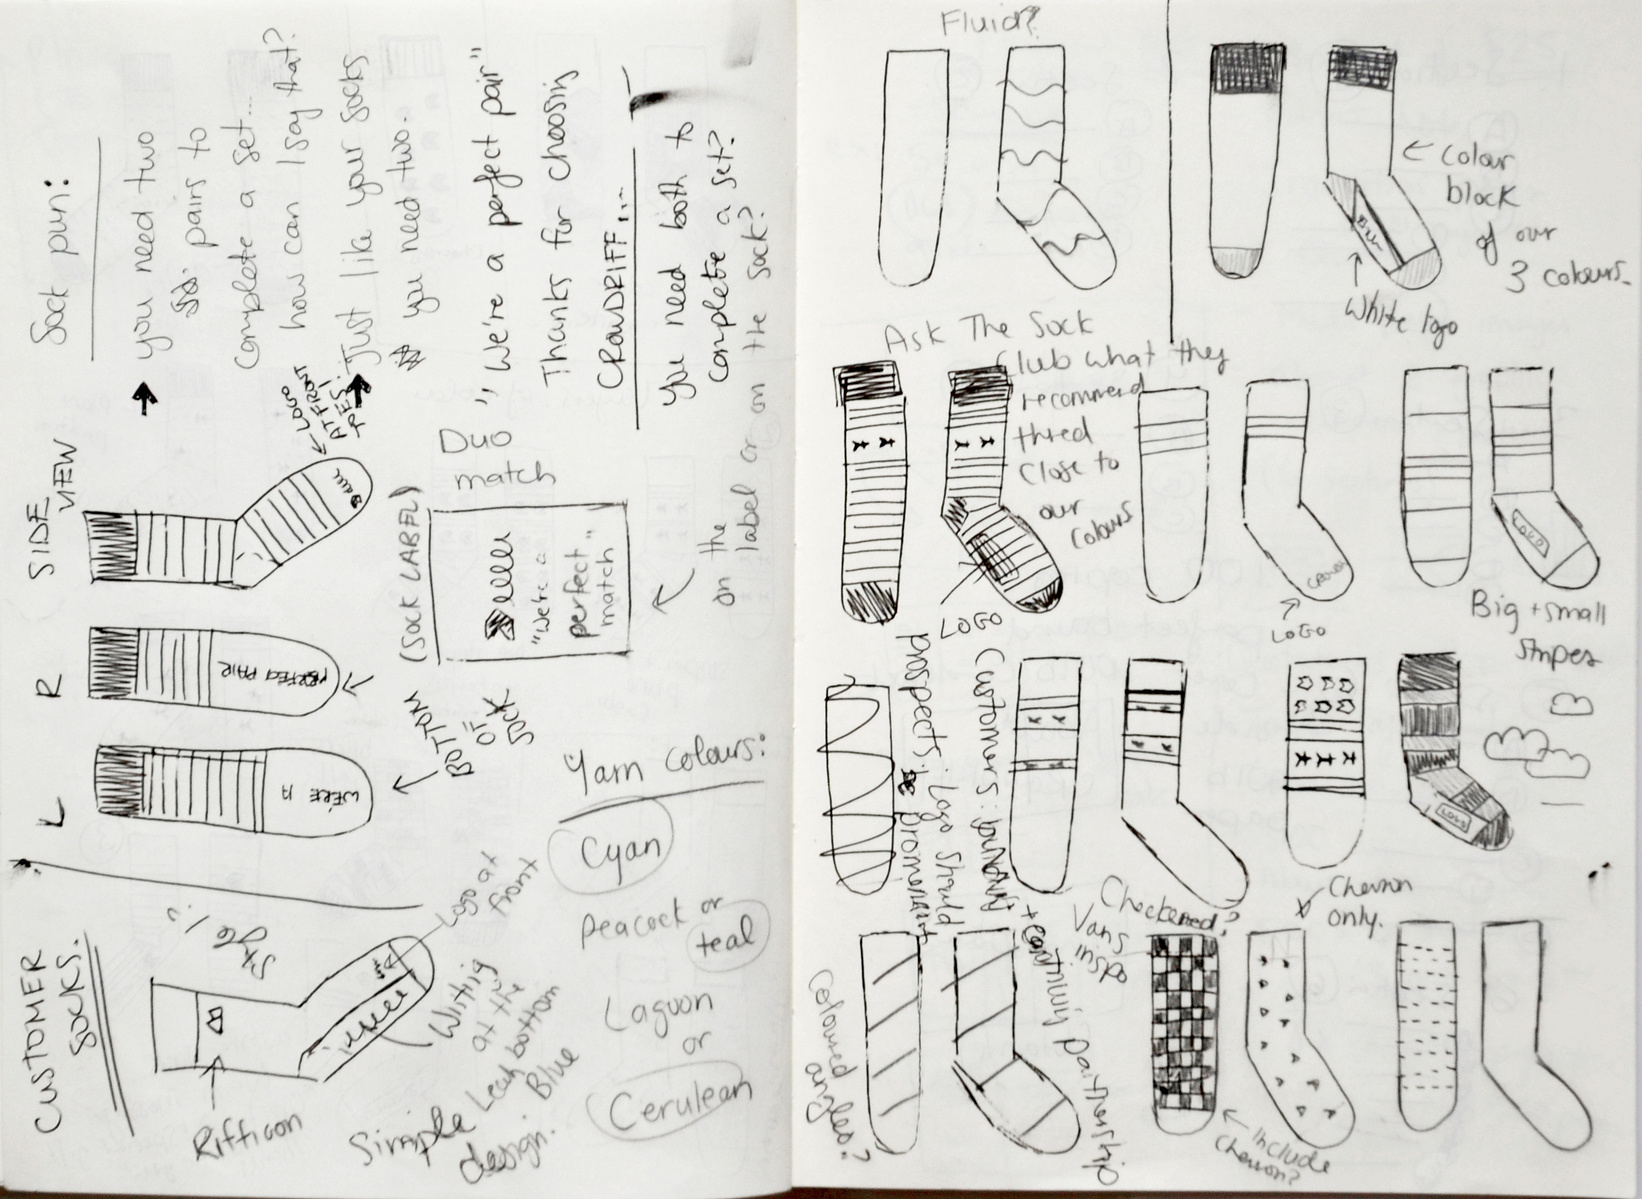 Sock pun:
you need two
pairs to
complete a set...
how can I say that?
Just like your socks
you need two.
"We're a perfect pair"
Thanks for choosing
CROWDRIFF...
you need both to
complete a set?
on the
label or on the sock?
SIDE
VIEW
LOGO
AT FRONT
R
L
PERFECT PAIR
WE'RE A
BOTTOM
OF
SOCK
Duo
match
(SOCK LABEL)
"We're a
perfect"
match
Yarn colours:
Cyan
Peacock or
teal
Laguon
or
Cerulean
CUSTOMER
SOCKS.
Style 1:
Logo at
front
Writing
at the
bottom
Simple Leah Blue
design.
Rifficon
Fluid?
← Colour
block
of our
3 colours.
White logo
Ask The Sock
Club what they
recommend
thred
close to
our
colours
LOGO
LOGO
LOGO
Big + small
stripes
prospects: Logo should
be prominent
Customers: journey
+ continuing partnership
LOGO
Checkered?
Vans
inspo
Chevron
only.
Coloured
angles?
Include
Chevron?